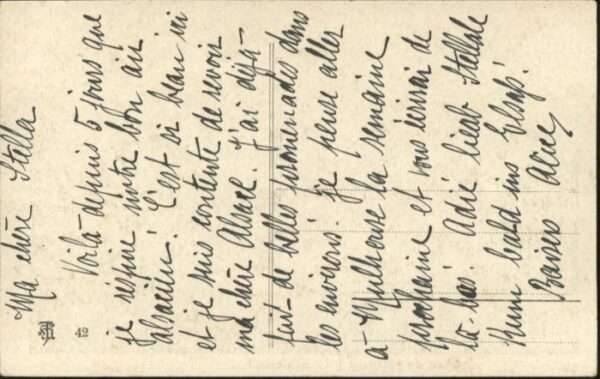 Ma chère Stella
Voilà depuis 5 jours que
je respire notre bon air
alsacien! C'est si beau ici
et je suis contente de revoir
ma chère Alsace. J'ai déjà
fait de belles promenades dans
les environs. Je pense aller
à Mulhouse la semaine
prochaine et vous écrirai de
là-bas! Adié lieb Stellale
Kum bald ins Elsaß!
Baisers Alice
42